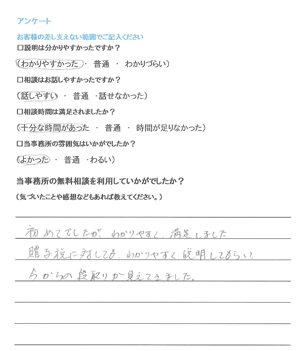 アンケート
お客様の差し支えない範囲でご記入ください
□説明は分かりやすかったですか?
(わかりやすかった ・ 普通 ・ わかりづらい)
□相談はお話しやすかったですか?
(話しやすい ・ 普通 ・話せなかった)
□相談時間は満足されましたか?
(十分な時間があった ・ 普通 ・ 時間が足りなかった)
□当事務所の雰囲気はいかがでしたか?
(よかった ・ 普通 ・わるい)
当事務所の無料相談を利用していかがでしたか?
(気づいたことや感想などもあれば教えてください。)
初めてでしたが、わかりやすく、満足しました
贈与税に対しても、わかりやすく説明してもらい
今からの段取りが見えてきました。